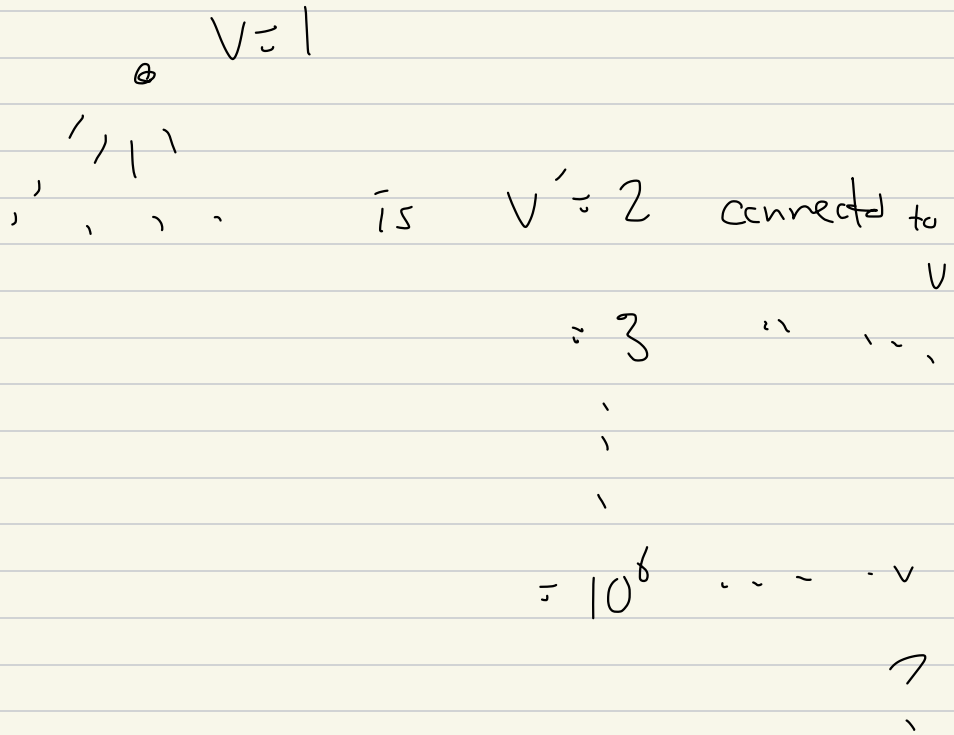 V = 1
is V' = 2 connected to
v
= 3 " ....
= 10⁶ .... v
?